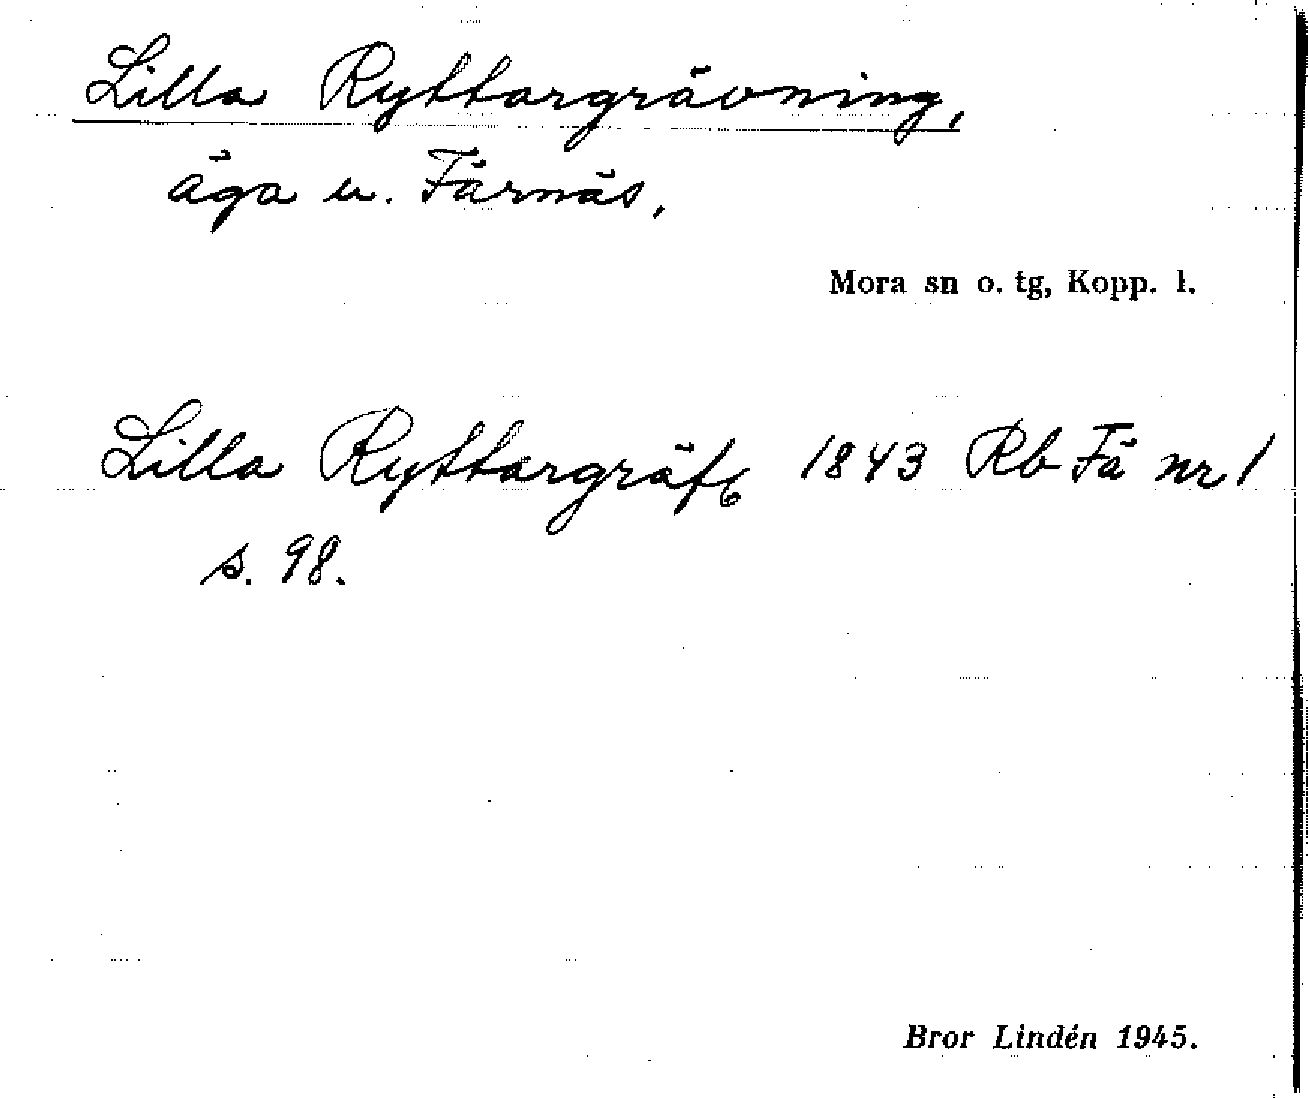 Lilla Ryttargrävning,
äga u. Färnäs,
Mora sn o. tg, Kopp. l.
Lilla Ryttargräfn 1843 Rb Fä nr 1
s. 98.
Bror Lindén 1945.